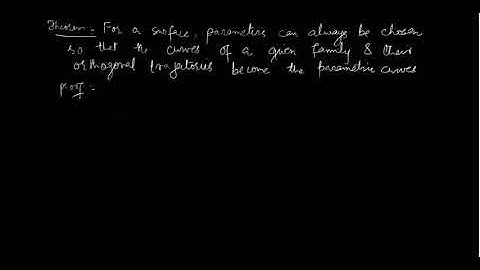 Theorem:- For a surface, parameters can always be chosen
so that the curves of a given family & their
orthogonal trajectories become the parametric curves
proof =